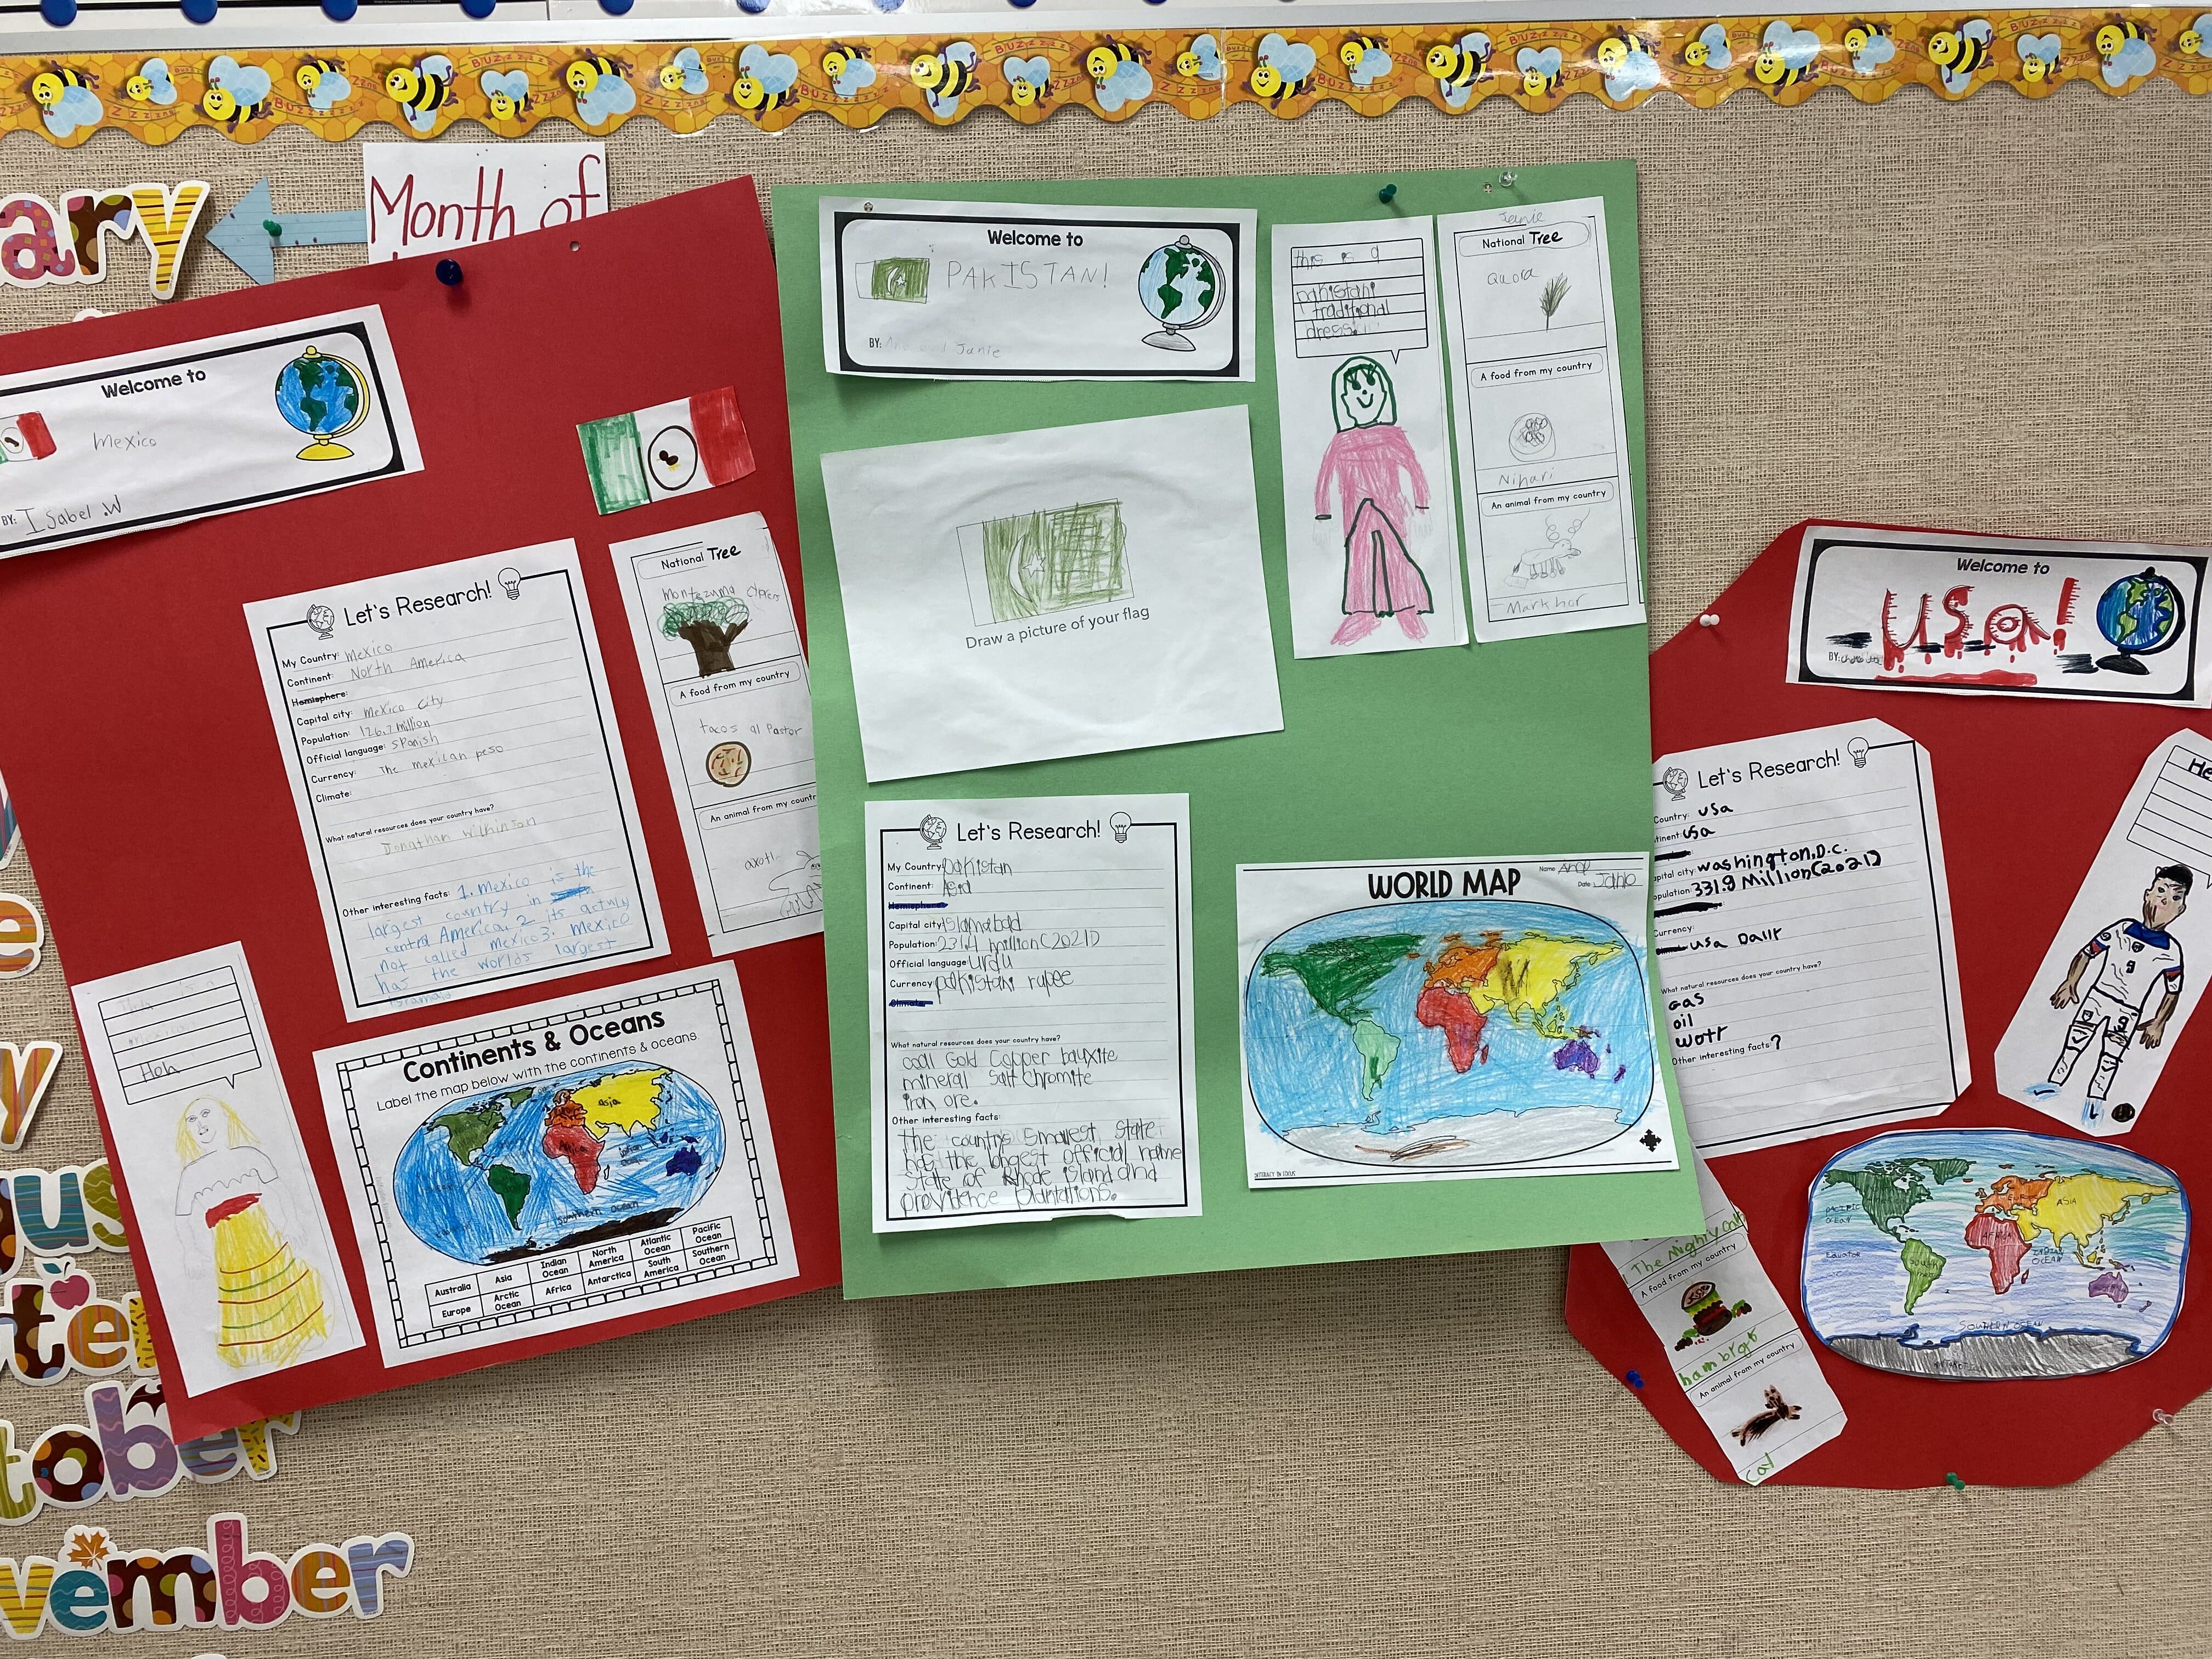 BUZZZZZZ
ary
Month of
Welcome to
Mexico
BY: Isabel .W
Let's Research!
My Country: Mexico
Continent: North America
Hemisphere:
Capital city: Mexico City
Population: 126.7 million
Official language: Spanish
Currency: The mexican peso
Climate:
What natural resources does your country have?
Other interesting facts: 1. Mexico is the
largest country in
central America. 2 its actuly
not called mexico 3. mexico
has the worlds largest
National Tree
montezuma
A food from my country
tacos al Pastor
An animal from my countr
axotl
Continents & Oceans
Label the map below with the continents & oceans
Asia
Africa
Southern ocean
Australia
Asia
Indian Ocean
North America
Atlantic Ocean
Pacific Ocean
Europe
Arctic Ocean
Africa
Antarctica
South America
Southern Ocean
Welcome to
PAKISTAN!
BY: Janie
Draw a picture of your flag
this is a
pakistani
traditional
dress.
Janie
National Tree
A food from my country
Nihari
An animal from my country
Markhor
Let's Research!
My Country: pakistan
Continent: Asia
Hemisphere:
Capital city: Islamabad
Population: 231.4 million (2021)
Official language: urdu
Currency: pakistani rupee
Climate:
What natural resources does your country have?
coal Gold Copper bauxite
mineral Salt Chromite
iron ore.
Other interesting facts:
the countrys smallest state
has the longest official name
state of Rhode island and
providence plantations.
WORLD MAP
Name
Date
LITERACY IN FOCUS
Welcome to
USa!
BY:
Let's Research!
Country: usa
tinent: usa
apital city: washington,D.C.
opulation: 331.9 Million(2021)
Currency:
usa Dallr
What natural resources does your country have?
Gas
oil
wotr
Other interesting facts: ?
He
The Mighty
A food from my country
hambrgr
An animal from my country
PACIFIC OCEAN
Equator
EUROPE
ASIA
AFRICA
INDIAN OCEAN
SOUTHERN OCEAN
tober
vember